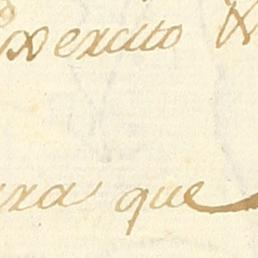 Exercito
para que